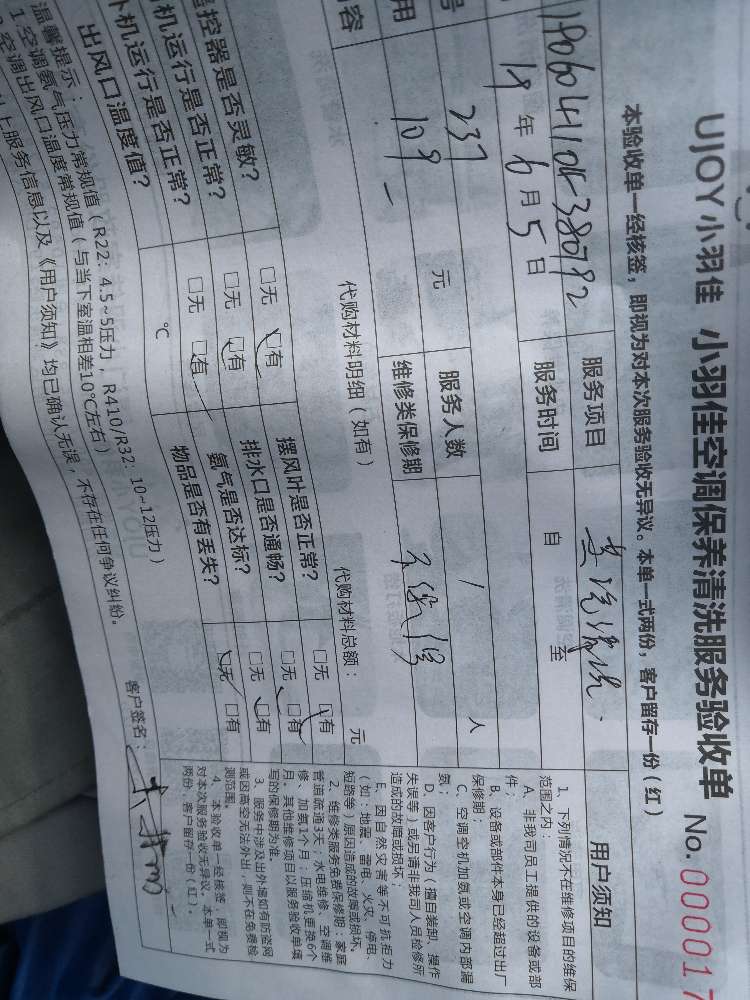 UJOY小羽佳 小羽佳空调保养清洗服务验收单 No. 0000017
本验收单一经核签，即视为对本次服务验收无异议。本单一式两份，客户留存一份（红）
服务项目
19年6月5日 服务时间 自 至
237 元 服务人数 1 人
用 109 维修类保修期
代购材料明细（如有） 代购材料总额： 元
控器是否灵敏？ □无 □有 摆风叶是否正常？ □无 □有
机运行是否正常？ □无 □有 排水口是否通畅？ □无 □有
机运行是否正常？ □无 □有 氨气是否达标？ □无 □有
出风口温度值？ ℃ 物品是否有丢失？ □无 □有
温馨提示：
1.空调氨气压力常规值（R22：4.5~5压力，R410/R32：10~12压力）
空调出风口温度常规值（与当下室温相差10℃左右）
上服务信息以及《用户须知》均已确认无误，不存在任何争议纠纷。
客户签名：
用户须知
1、下列情况不在维修项目的维保
范围之内：
A、非我司员工提供的设备或部
件；
B、设备或部件本身已经超过出厂
保修期；
C、空调空机加氨或空调内部漏
氨；
D、因客户行为（擅自装卸、操作
失误等）或另请非我司人员检修所
造成的故障或损坏；
E、因自然灾害等不可抗拒力
（如：地震、雷电、火灾、停电、
短路等）原因造成的故障或损坏。
2、维修类服务免费保修期：家庭
管道疏通3天；水电维修、空调维
修、加氨1个月；压缩机更换6个
月。其他维修项目以服务验收单填
写的保修期为准。
3、服务中涉及出外墙如有防盗网
或因高空无法外出，则不在免费检
测范围。
4、本验收单一经核签，即视为
对本次服务验收无异议。本单一式
两份，客户留存一份（红）。